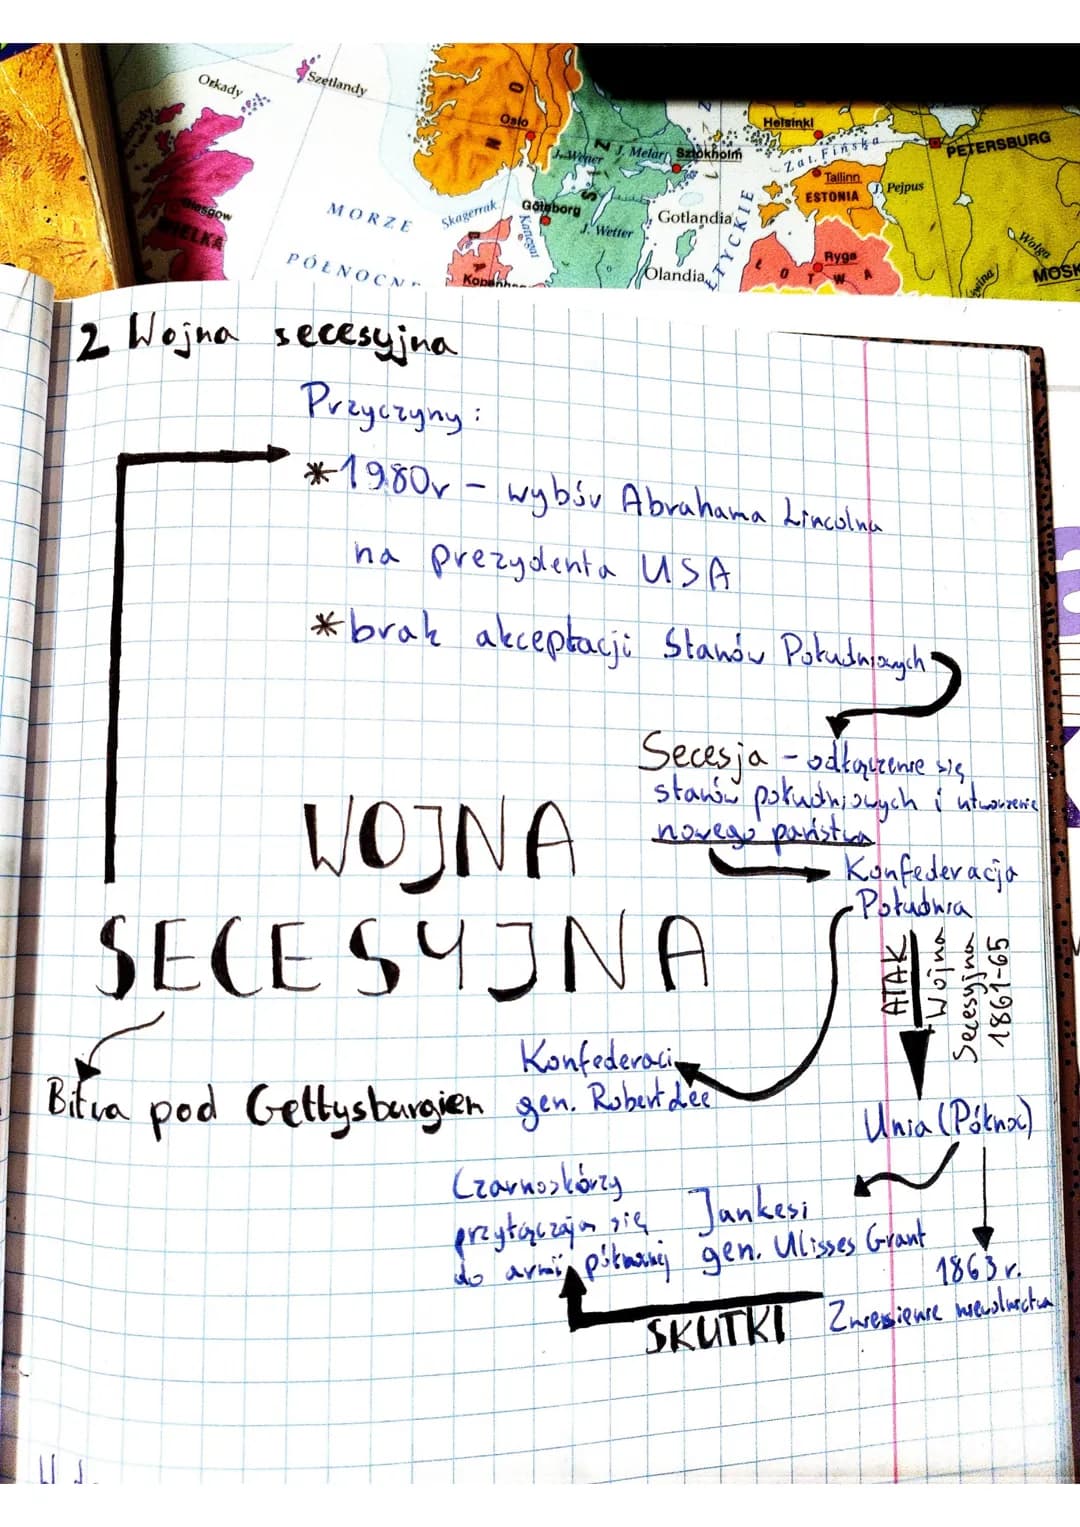 Orkady
Szetlandy
Oslo
N
O
Helsinki
Zat. Fińska
PETERSBURG
J. Wener
J. Melar
Sztokholm
Tallinn
ESTONIA
J. Pejpus
Glasgow
WIELKA
MORZE
PÓŁNOCN
Skagerrak
Göteborg
Kattegat
J. Wetter
Gotlandia
Olandia
TYCKIE
Ryga
ŁOTWA
Wołga
MOSK
2 Wojna secesyjna
Przyczyny:
*1980r - wybór Abrahama Lincolna
na prezydenta USA
*brak akceptacji Stanów Południowych
Secesja - odłączenie się
stanów południowych i utworzenie
nowego państwa
Konfederacja
Południa
WOJNA
SECESYJNA
ATAK
Wojna
Secesyjna
1861-65
Konfederaci
gen. Robert Lee
Bitwa pod Gettysburgiem
Unia (Północ)
Czarnoskórzy
przyłączają się
do armii północnej
Jankesi
gen. Ulisses Grant
1863 r.
Zniesienie niewolnictwa
SKUTKI